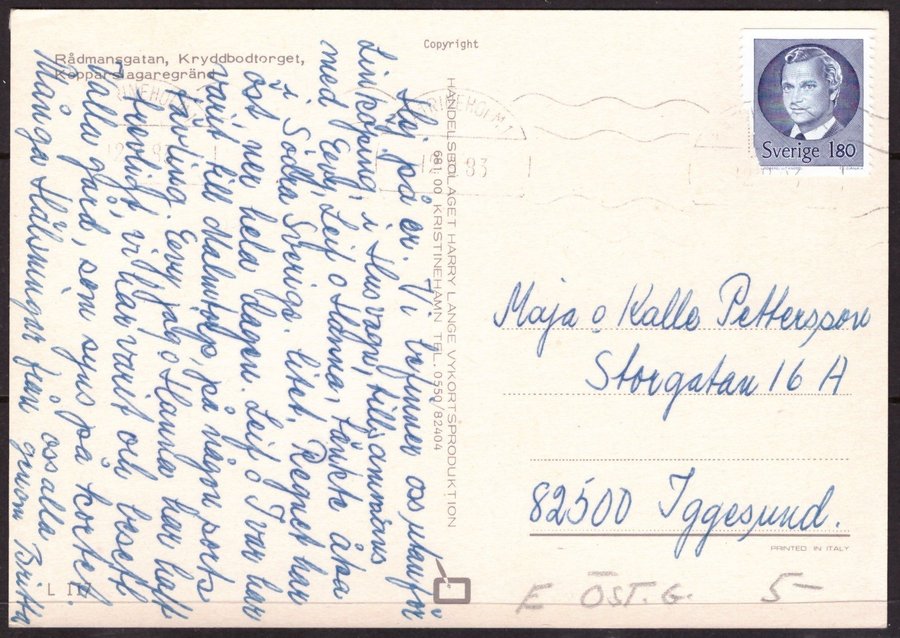 Rådmansgatan, Kryddbodtorget,
Kopparslagaregränd
Copyright
Hej på er. Vi befinner oss utanför
Linköping, i Husvagn, tillsammans
med Eevy, Leif o Hanna, tänkte åka
i Södra Sverige litet. Regnet har
öst ner hela dagen. Leif o Ivar har
varit till Malmköp, på någon sorts
tävling. Eevy jag o Hanna har haft
trevligt, vi har varit och besett
Valla gård, som syns på kortet.
Många Hälsningar från oss alla
genom Britta
L 117
HANDELSBOLAGET HARRY LANGE VYKORTSPRODUKTION
681 00 KRISTINEHAMN TEL. 0550/82404
KATRINEHOLM 1
83
Sverige 180
Maja o Kalle Pettersson
Storgatan 16 A
82500 Iggesund.
PRINTED IN ITALY
E ÖST.G. 5-